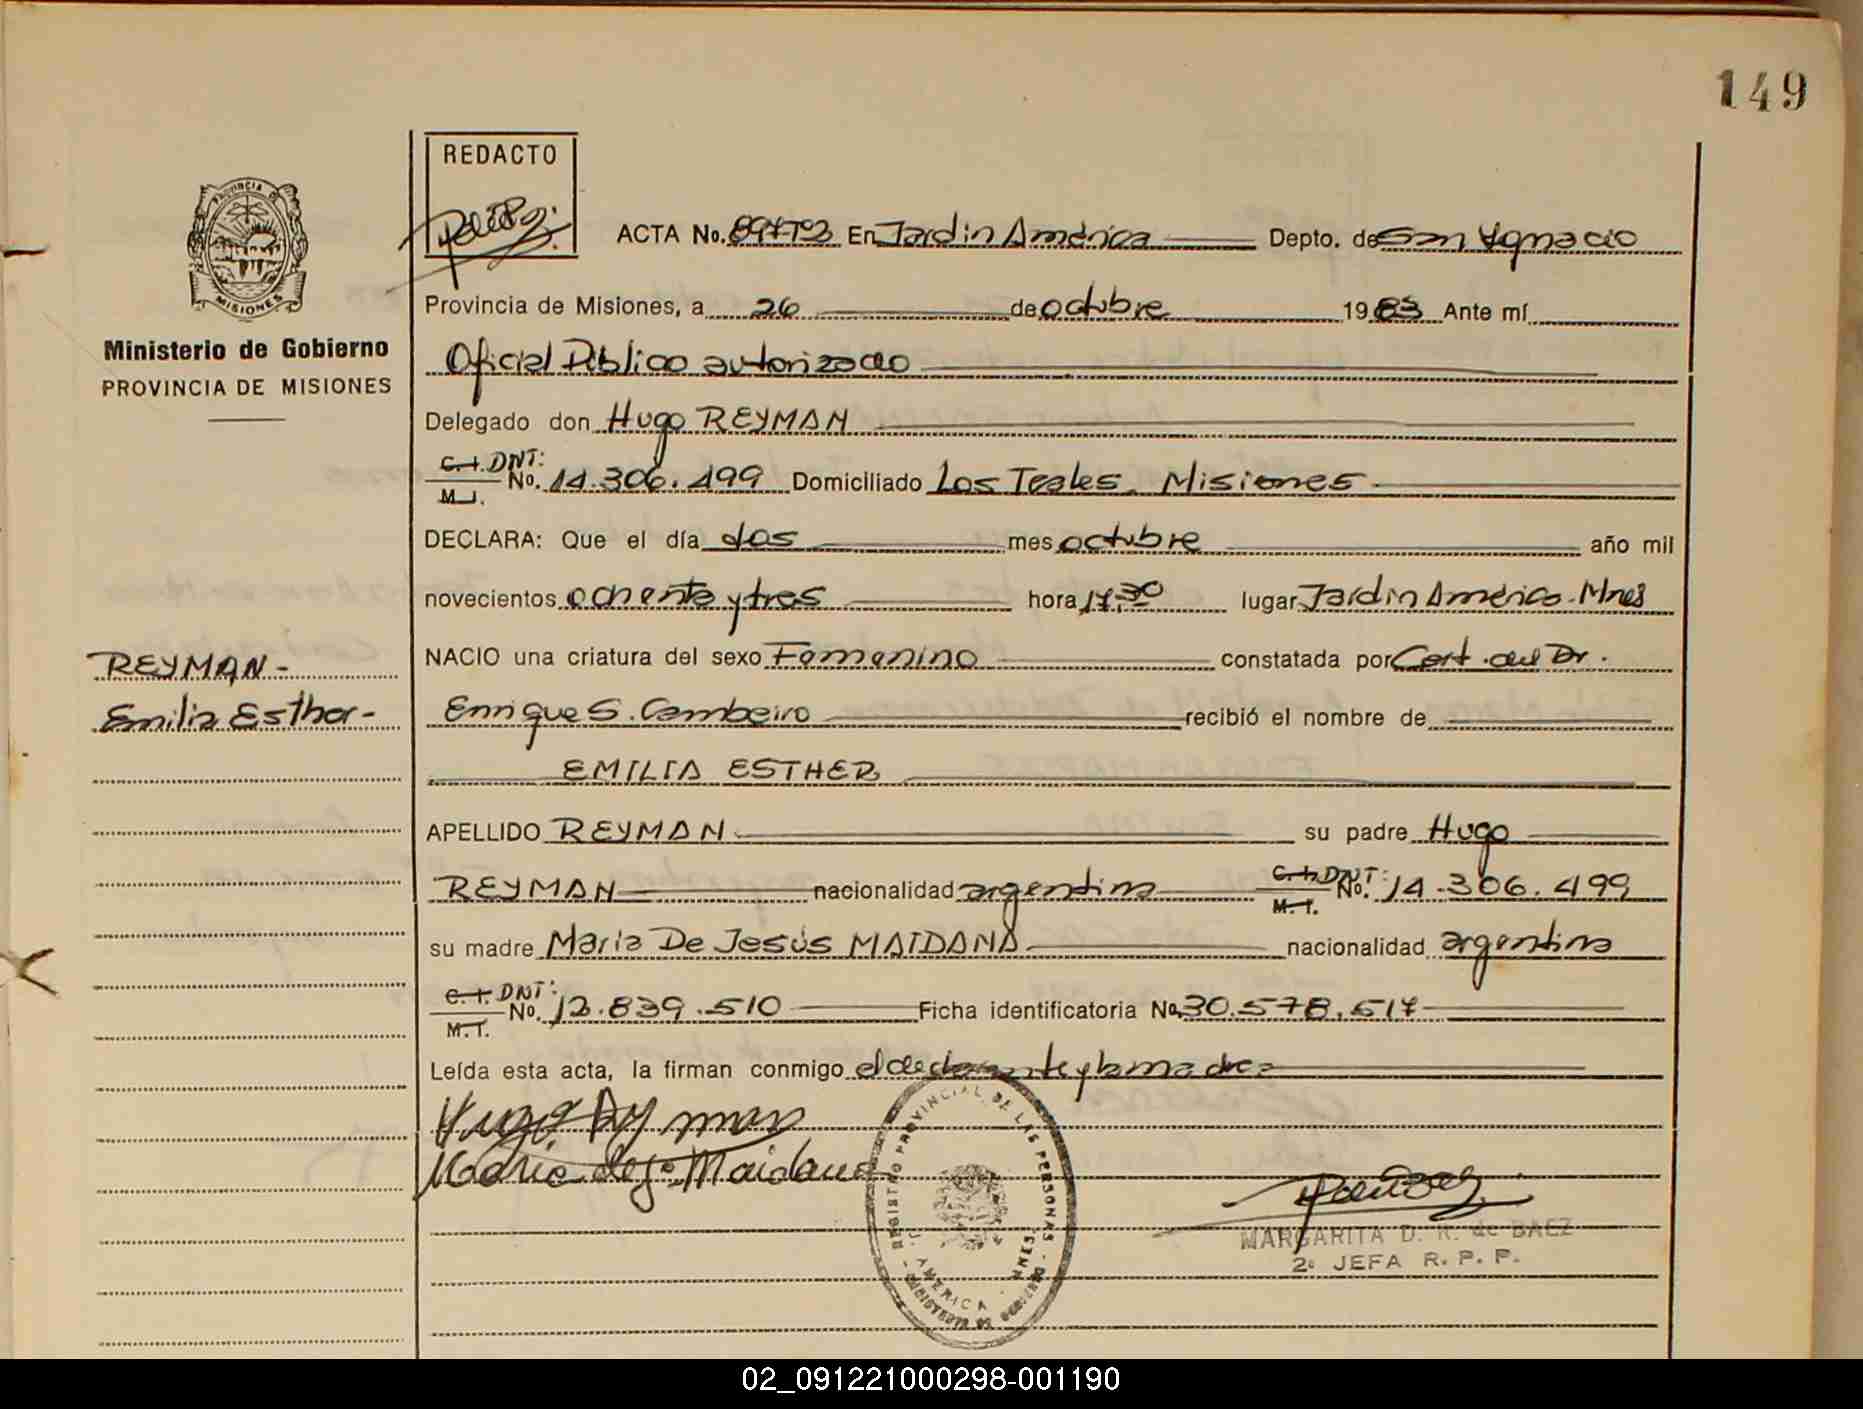 149
REDACTO
ACTA No. 897Tº3 En Jardín América Depto. de San Ygnacio
PROVINCIA DE
MISIONES
Provincia de Misiones, a 26 de octubre 1983 Ante mí
Ministerio de Gobierno
PROVINCIA DE MISIONES
Oficial Público autorizado
Delegado don Hugo REYMAN
C.I. DNI:
M.I. No. 14.306.499 Domiciliado Los Teales. Misiones.
DECLARA: Que el día dos mes octubre año mil
novecientos ochenta y tres hora 17,30 lugar Jardín América. Mnes
REYMAN-
Emilia Esther-
NACIO una criatura del sexo Femenino constatada por Cert. del Dr.
Enrique S. Cambeiro recibió el nombre de
EMILIA ESTHER
APELLIDO REYMAN su padre Hugo
REYMAN nacionalidad argentina C.I. DNI: M.I. No. 14.306.499
su madre María De Jesús MAIDANA nacionalidad argentina
C.I. DNI:
M.I. No. 12.839.510 Ficha identificatoria No. 30.578.517
Leída esta acta, la firman conmigo el declarante y la madre
Hugo Reyman
Maria de J. Maidana
REGISTRO PROVINCIAL DE LAS PERSONAS
J. AMERICA MNES.
MINISTERIO DE GOBIERNO
MARGARITA D. R. de BAEZ
2ª JEFA R. P. P.
02_091221000298-001190